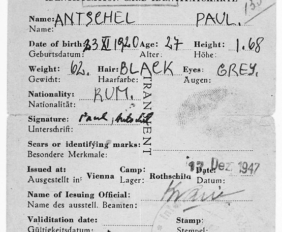 Name: ANTSCHEL PAUL.
Name:
Date of birth: 23 XI 1920 Age: 27 Height: 1.68
Geburtsdatum: Alter. Höhe:
Weight: 62. Hair: BLACK Eyes: GREY.
Gewicht: Haarfarbe: Augen:
Nationality: RUM.
Nationalität:
TRANSIENT
Signature: Paul Antschel
Unterschrift:
Scars or identifying marks:
Besondere Merkmale:
Issued at: Vienna Camp: Rothschild Date: 17 Dez 1947
Ausgestellt in: Lager: Datum:
Name of Issuing Official:
Name des ausstell. Beamten:
Validitation date: Stamp:
Gültigkeitsdatum: Stempel: